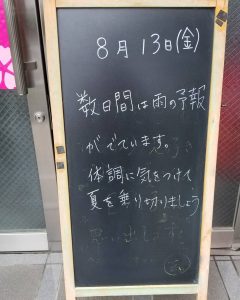 8月13日(金)
数日間は雨の予報
がでています。
体調に気をつけて
夏を乗り切りましょう